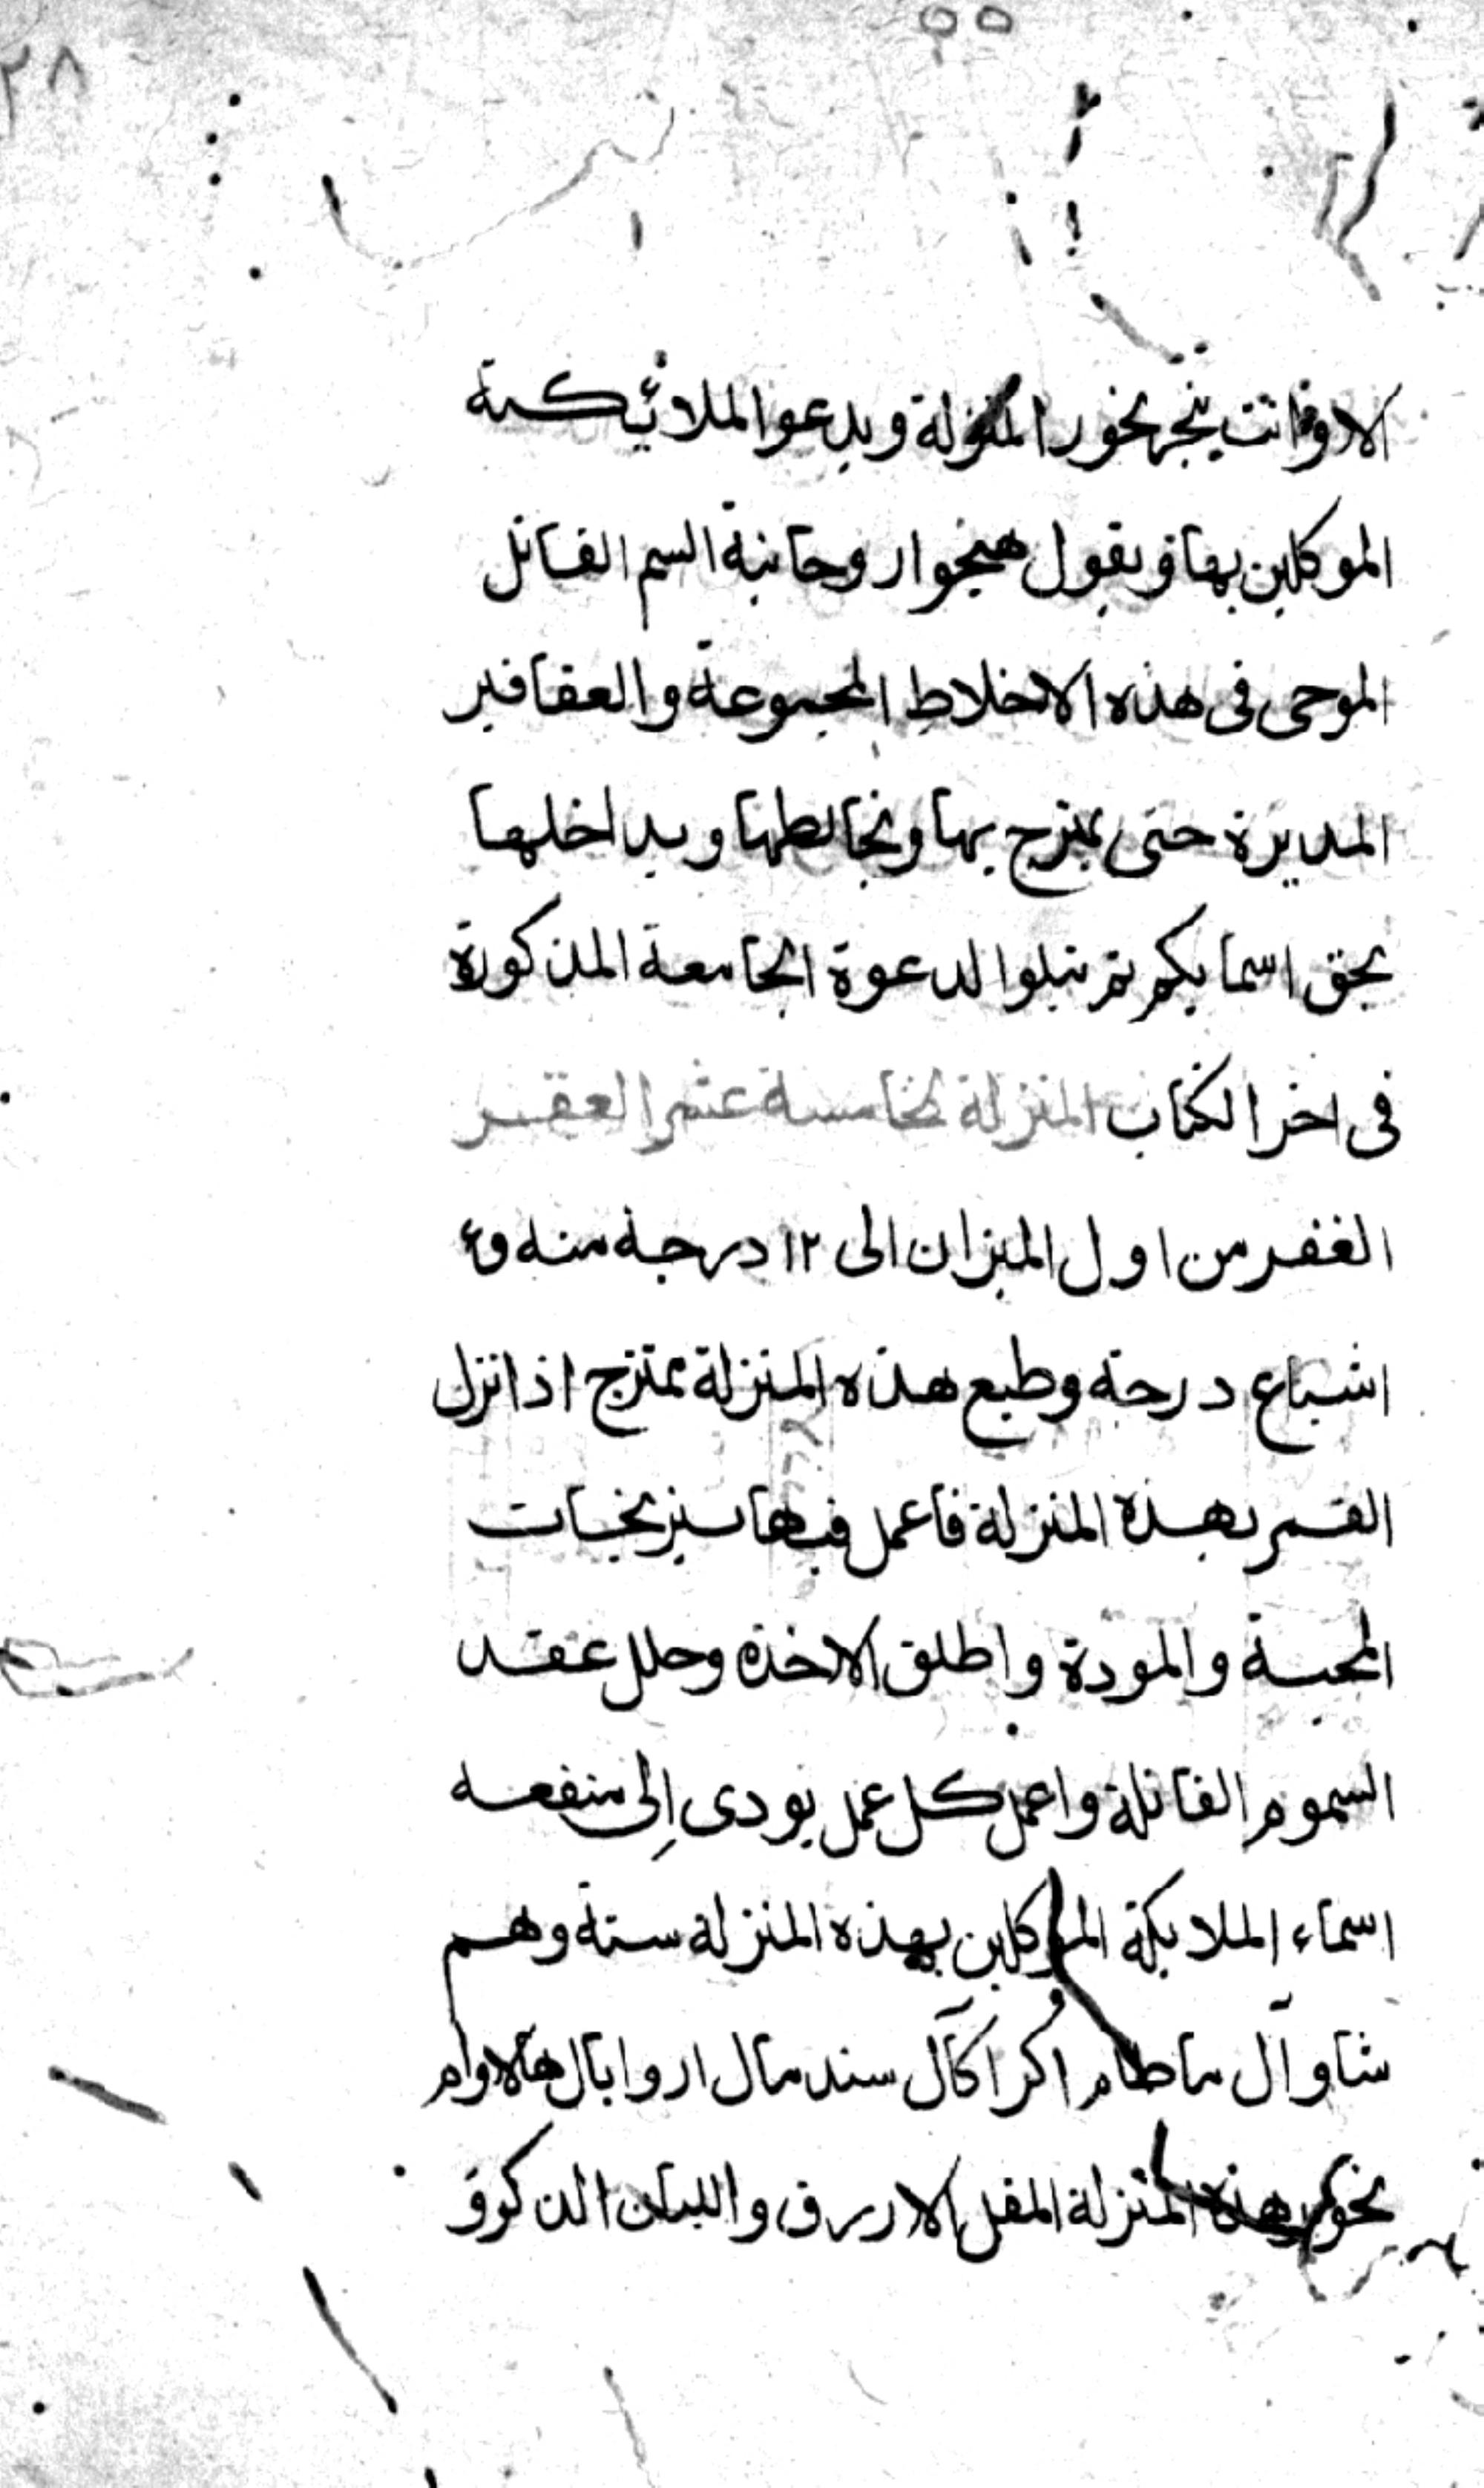 ٥٥
٢٨
الا وانت يبخر بخور المنزلة ويدعوا الملائيكة
الموكلين بها ويقول هيجوا روحانية السم القاتل
الموحى فى هذه الاخلاط المجموعة والعقاقير
المديرة حتى يمتزج بها ونخالطها ويداخلها
بحق اسمايكم ثم تتلوا الدعوة الجامعة المذكورة
فى اخر الكتاب المنزلة الخامسة عشر العقر
الغفر من اول الميزان الى ١٢ درجة منه و٤
اسباع درجة وطبع هذه المنزلة ممتزج اذا نزل
القمر بهذه المنزلة فاعمل فيها نيرنجات
المحبة والمودة واطلق الاخذه وحلل عقد
السموم القاتلة واعمل كل عمل يودى إلى منفعه
اسماء الملايكة الموكلين بهذه المنزلة ستة وهم
شاوآل ماطام اكراكآل سندمال اروابال هالاوام
بخور هذه المنزلة المقل الازرق واللبان الذكر و